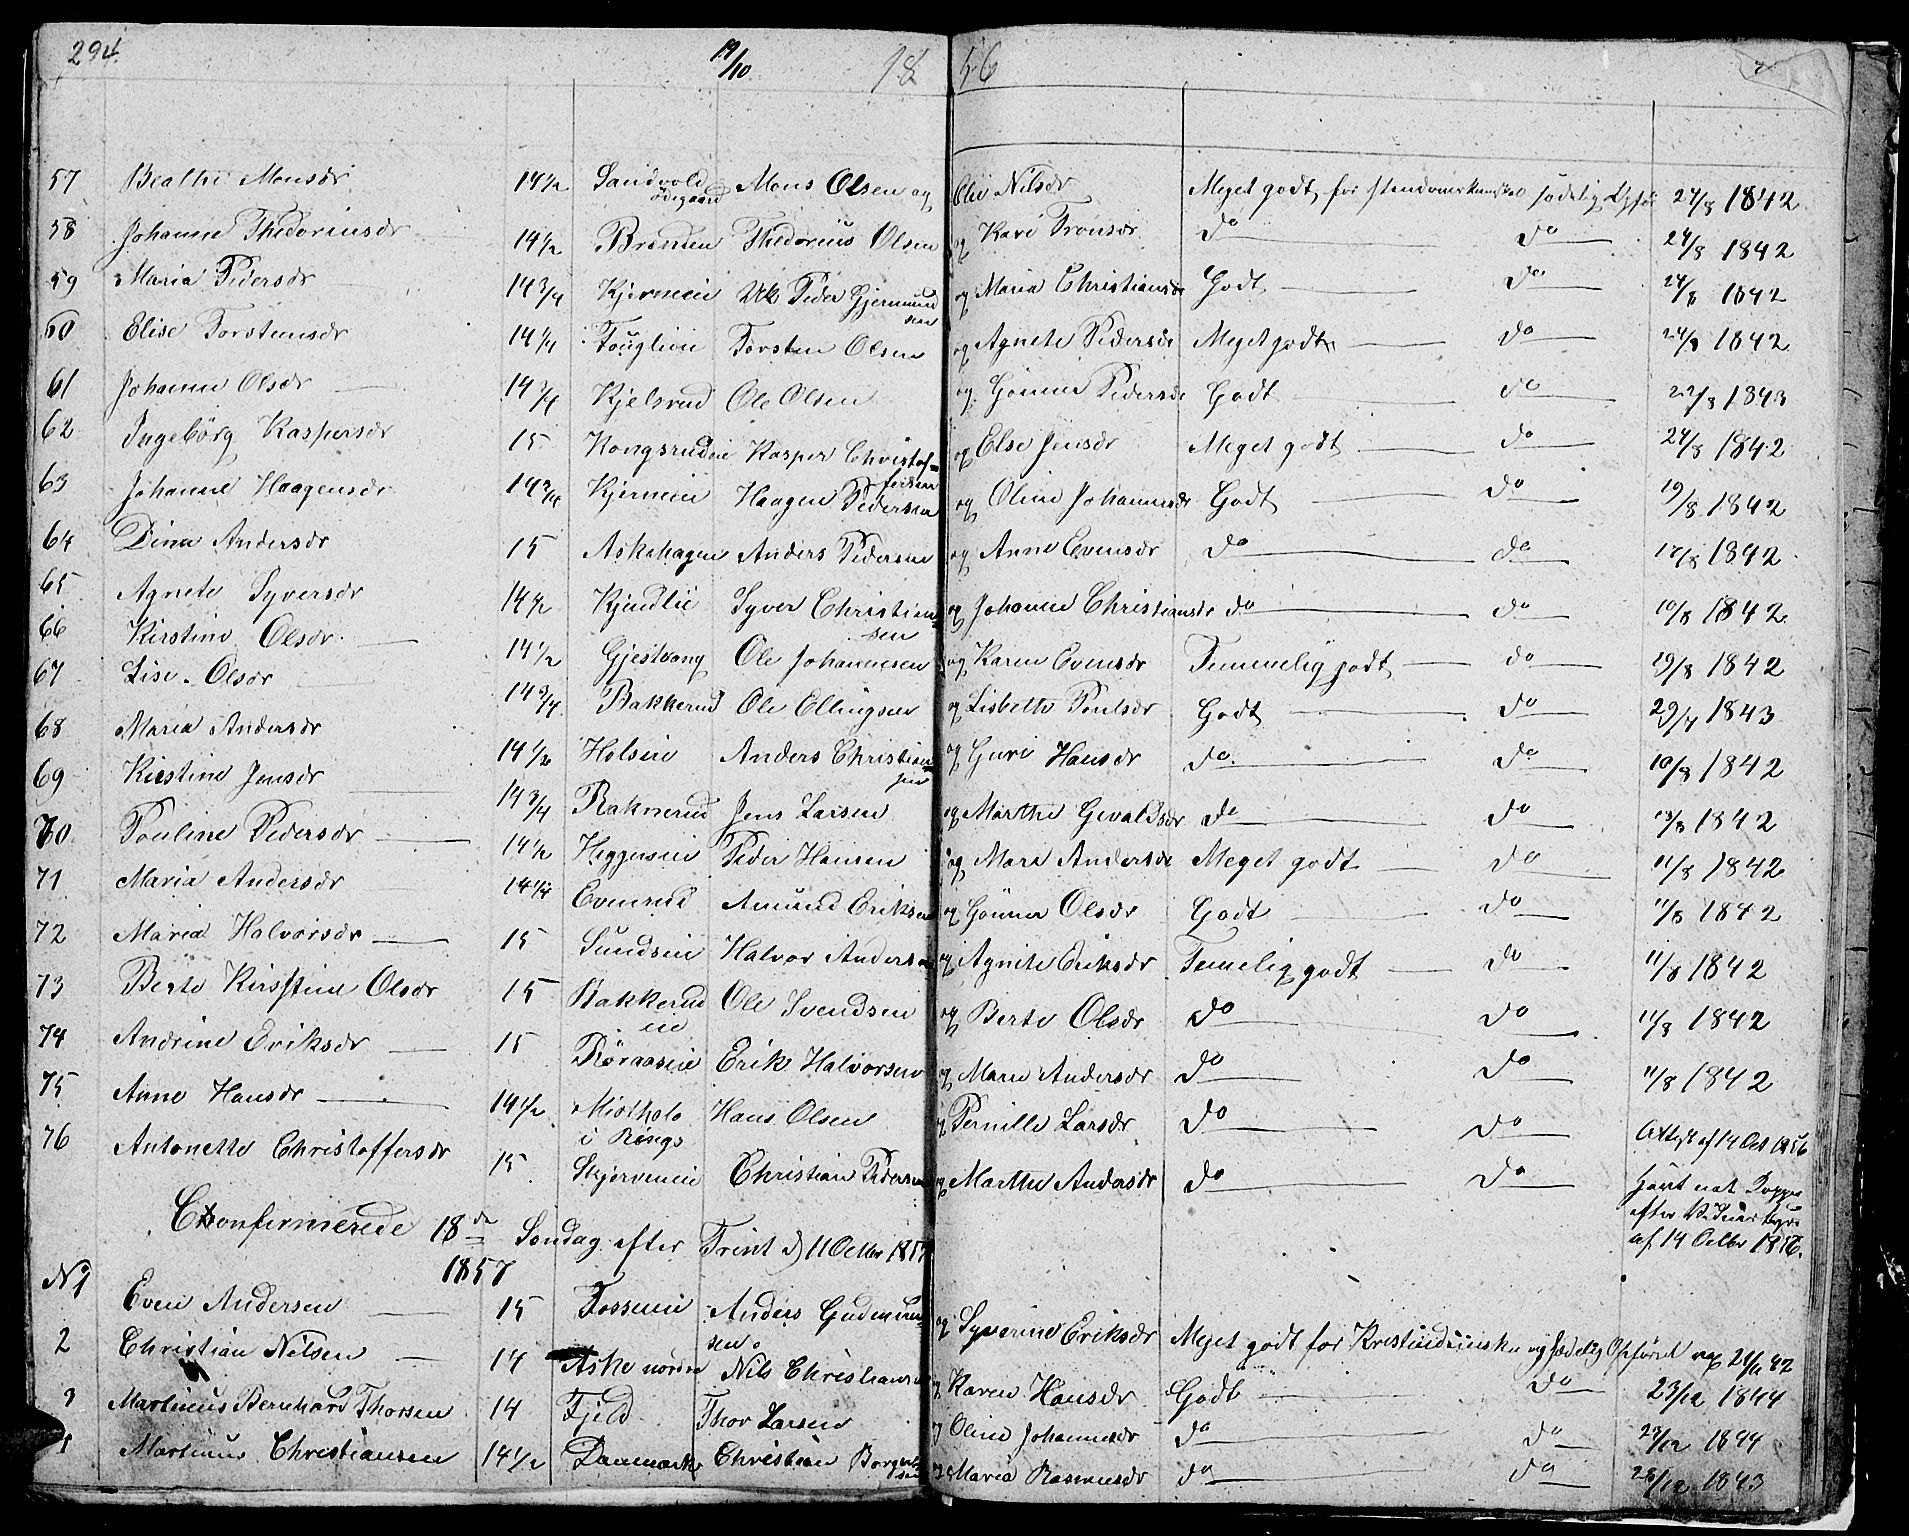 294. 19/10 18 56
57 Beathe Monsdr 14½ Sandvold Mons Olsen og Olie Nilsdr Meget godt for 24/8 1842
ødegaard
58 Johanne Thedoriusdr 14½ Brænden Thedorius Olsen og Kari Tronsdr do do 24/8 1842
59 Maria Pedersdr 14¾ Kjerneie Uk Peder Gjermund og Maria Christiansdr Godt do 24/8 1842
sen
60 Elise Torstensdr 14¼ Torsten Olsen og Agnete Pedersdr Meget godt do 24/8 1842
61 Johanne Olsdr 14¾ Kjelsrud Ole Olsen og Gönner Pedersdr Godt do 1843
62 Ingebörg Kaspersdr 15 Kongsrudeie Kasper Christof= og Else Jensdr Meget godt do 24/8 1842
fersen
63 Johanne Haagensdr 14¾ Kjerneie Haagen Pedersen og Oline Johannesdr Godt do 19/8 1842
64 Dina Andersdr 15 Askehagen Anders Pedersen og Anne Evensdr do do 1842
65 Agnete Syversdr 14½ Kjendlie Syver Christian= og Johanne Christiansdr do do 10/8 1842
sen
66 Kirstine Olsdr 14½ Gjestvang Ole Johannesen og Karen Evensdr Temmelig godt do 29/8 1842
67 Lise Olsdr 14¾ Bakkerud Ole Ellingsen og Lisbeth Poulsdr Godt do 29/7 1843
68 Maria Andersdr 14½ Holseie Anders Christian= og Guri Hansdr do do 10/8 1842
sen
69 Kirstine Jensdr 14¾ Raknerud Jens Larsen og Marthe Gevaldsdr do do 13/8 1842
70 Pouline Pedersdr 14½ Heggeneie Peder Hansen og Mari Andersdr Meget godt do 11/8 1842
71 Maria Andersdr 14¼ Evenrud Amund Eriksen og Gönner Olsdr Godt do 11/8 1842
72 Maria Halvorsdr 15 Sundseie Halvor Andersen og Agnete Eriksdr Temelig godt do 11/8 1842
73 Berte Kirstine Olsdr 15 Bakkerud Ole Svendsen og Berte Olsdr do do 11/8 1842
eie
74 Andrine Eriksdr 15 Böraaseie Erik Halvorsen og Maren Andersdr do do 11/8 1842
75 Anne Hansdr 14½ Hans Olsen og Pernille Larsdr do do Attest af 14 Oct 1856
i Rings
76 Antonette Christoffersdr 15 Skjerveneie Christian Pedersen og Marthe Andersdr do do
efter
af 14 Octbr 1856.
Confirmerede 18de Søndag efter Trint d 11 Octbr 1857
1857
No 1 Even Andersen 15 Fosseneie Anders Gudmun og Syverine Eriksdr Meget godt for og sædelig Opførsel
sen
2 Christian Nilsen 14 Aske nordre Nils Christiansen og Karen Hansdr Godt do 23/12 1844
3 Martinus Bernhard Thorsen 14 Fjeld Thor Larsen og Oline Johannesdr do do 1844
4 Martinus Christiansen 14½ Danmark Christian og Maria Rasmusdr do do 28/12 1843
sen